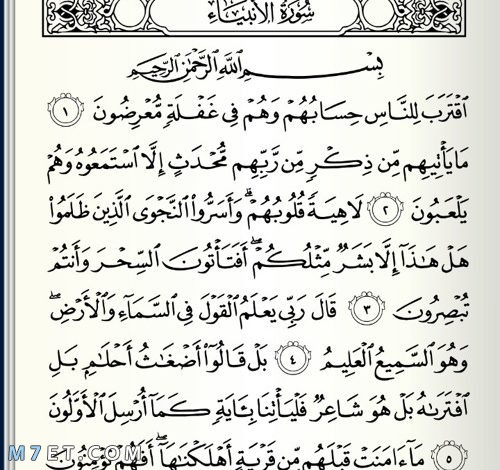 سُورَةُ الْأَنْبِيَاءِ
بِسْمِ ٱللَّهِ ٱلرَّحْمَٰنِ ٱلرَّحِيمِ
ٱقْتَرَبَ لِلنَّاسِ حِسَابُهُمْ وَهُمْ فِى غَفْلَةٍ مُّعْرِضُونَ ١
مَا يَأْتِيهِم مِّن ذِكْرٍ مِّن رَّبِّهِم مُّحْدَثٍ إِلَّا ٱسْتَمَعُوهُ وَهُمْ
يَلْعَبُونَ ٢ لَاهِيَةً قُلُوبُهُمْ ۗ وَأَسَرُّوا۟ ٱلنَّجْوَى ٱلَّذِينَ ظَلَمُوا۟
هَلْ هَٰذَآ إِلَّا بَشَرٌ مِّثْلُكُمْ ۖ أَفَتَأْتُونَ ٱلسِّحْرَ وَأَنتُمْ
تُبْصِرُونَ ٣ قَالَ رَبِّى يَعْلَمُ ٱلْقَوْلَ فِى ٱلسَّمَآءِ وَٱلْأَرْضِ ۖ
وَهُوَ ٱلسَّمِيعُ ٱلْعَلِيمُ ٤ بَلْ قَالُوٓا۟ أَضْغَٰثُ أَحْلَٰمٍۭ بَلِ
ٱفْتَرَىٰهُ بَلْ هُوَ شَاعِرٌ فَلْيَأْتِنَا بِـَٔايَةٍ كَمَآ أُرْسِلَ ٱلْأَوَّلُونَ
٥ مَآ ءَامَنَتْ قَبْلَهُم مِّن قَرْيَةٍ أَهْلَكْنَٰهَآ ۖ أَفَهُمْ يُؤْمِنُونَ
M7ET.COM